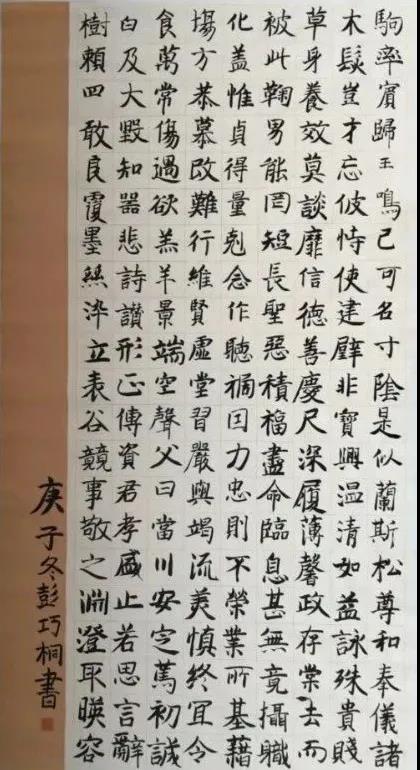 駒率賓歸王鳴己可名寸陰是似蘭斯松尊和奉儀諸
木髮豈才忘彼恃使建璧非寶興温清如益詠殊貴賤
草身養效莫談靡信德善慶尺深履薄馨政存棠去而
被此鞠男能罔短長聖惡積福盡命臨息甚無竟攝職
化盖惟貞得量剋念作聽禍因力忠則不榮業所基藉
場方恭慕改難行維賢虛堂習嚴與竭流美慎終宜令
食萬常傷過欲羔羊景端空聲父曰當川安定篤初誠
白及大毀知器悲詩讃形正傳資君孝盛止若思言辭
樹賴四敢良覆墨絲染立表谷競事敬之淵澄取暎容
庚子冬彭巧桐書